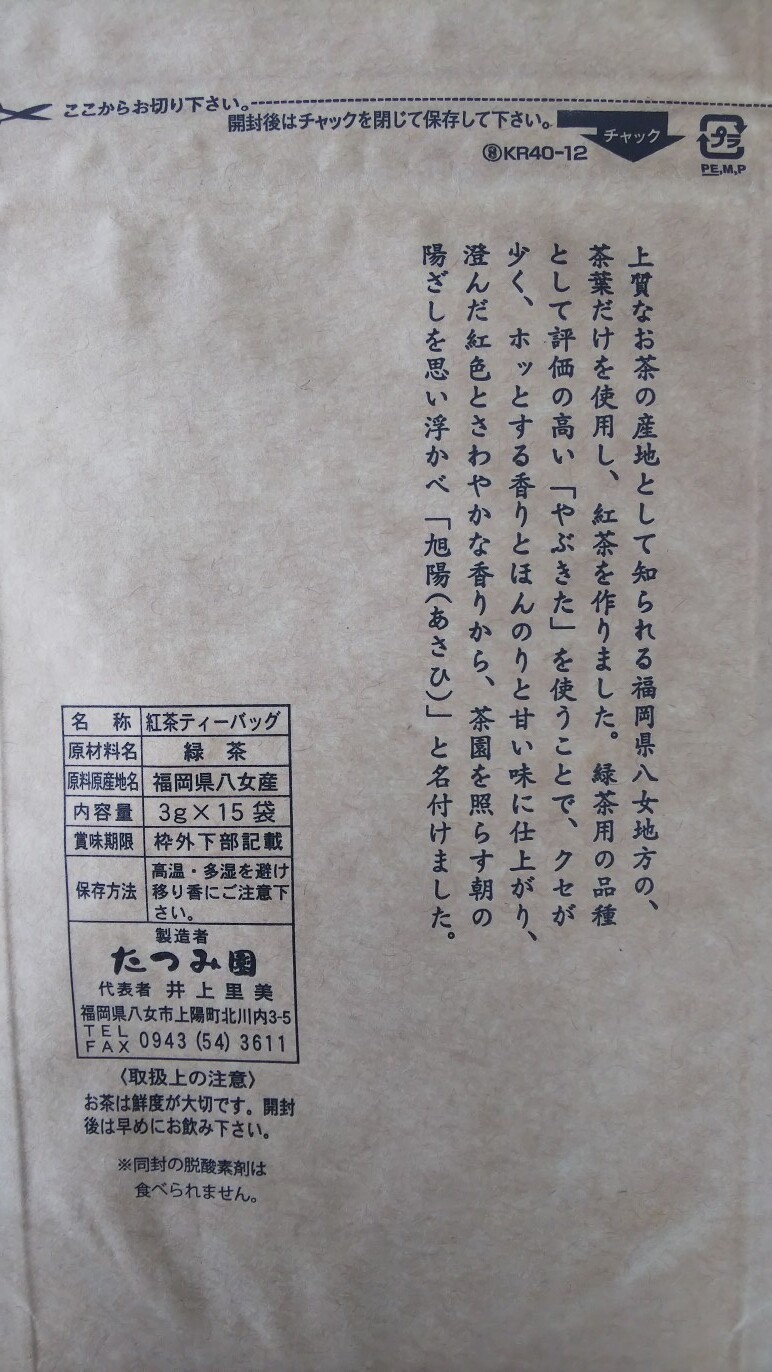 ここからお切り下さい。
開封後はチャックを閉じて保存して下さい。
チャック
プラ
PE,M,P
KR40-12
上質なお茶の産地として知られる福岡県八女地方の、
茶葉だけを使用し、紅茶を作りました。緑茶用の品種
として評価の高い「やぶきた」を使うことで、クセが
少く、ホッとする香りとほんのりと甘い味に仕上がり、
澄んだ紅色とさわやかな香りから、茶園を照らす朝の
陽ざしを思い浮かべ「旭陽(あさひ)」と名付けました。
名 称 紅茶ティーバッグ
原材料名 緑 茶
原料原産地名 福岡県八女産
内容量 3g×15袋
賞味期限 枠外下部記載
保存方法 高温・多湿を避け
移り香にご注意下
さい。
製造者
たつみ園
代表者 井上里美
福岡県八女市上陽町北川内3-5
TEL
FAX 0943 (54) 3611
〈取扱上の注意〉
お茶は鮮度が大切です。開封
後は早めにお飲み下さい。
※同封の脱酸素剤は
食べられません。